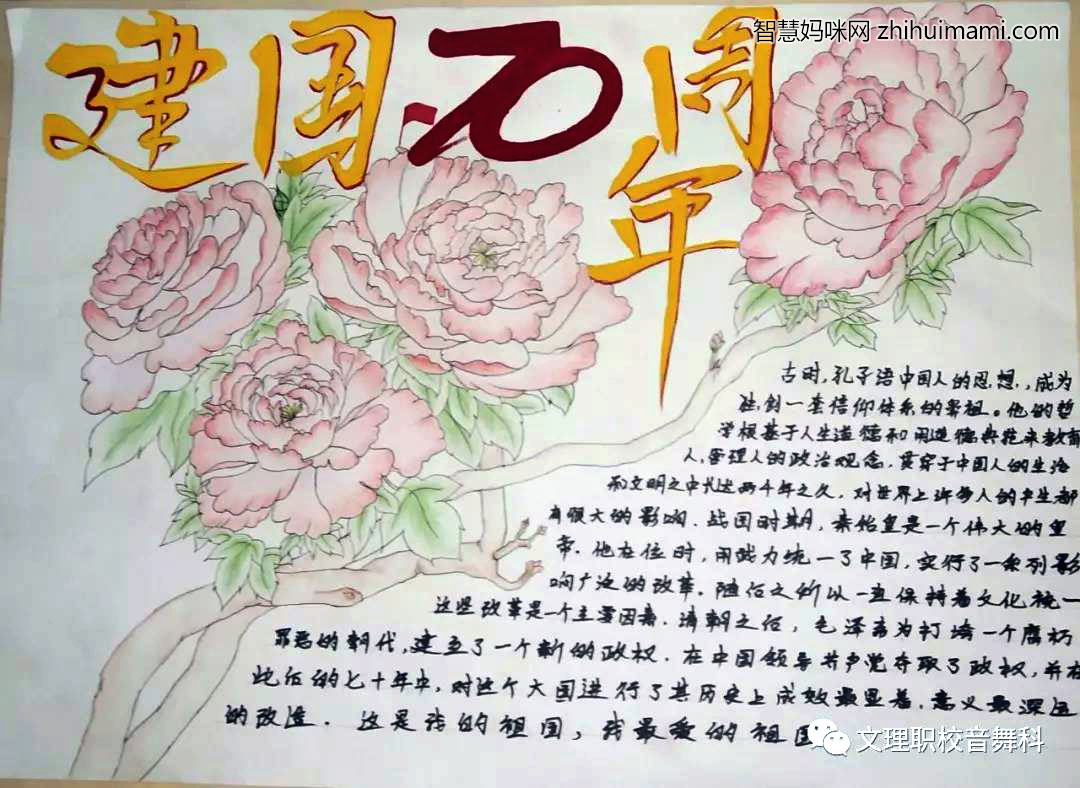 智慧妈咪网 zhihuimami.com
建国70周年
古时,孔子语中国人的思想,,成为
独创一套信仰体系的鼻祖。他的哲
学根基于人生道德和用道德典范来教育
人,管理人的政治观念,贯穿于中国人的生活
和文明之中长达两千年之久,对世界上许多人的半生都
有很大的影响.战国时期,秦始皇是一个伟大的皇
帝.他在位时,用武力统一了中国,实行了一系列影
响广泛的改革.随后之所以一直保持着文化统一
这些改革是一个主要因素.清朝之后,毛泽东为打垮一个腐朽
罪恶的朝代,建立了一个新的政权.在中国领导共产党夺取了政权,并在
此后的七十年中,对这个大国进行了其历史上成效最显着,意义最深远
的改造.这是我的祖国,我最爱的祖国
文理职校音舞科